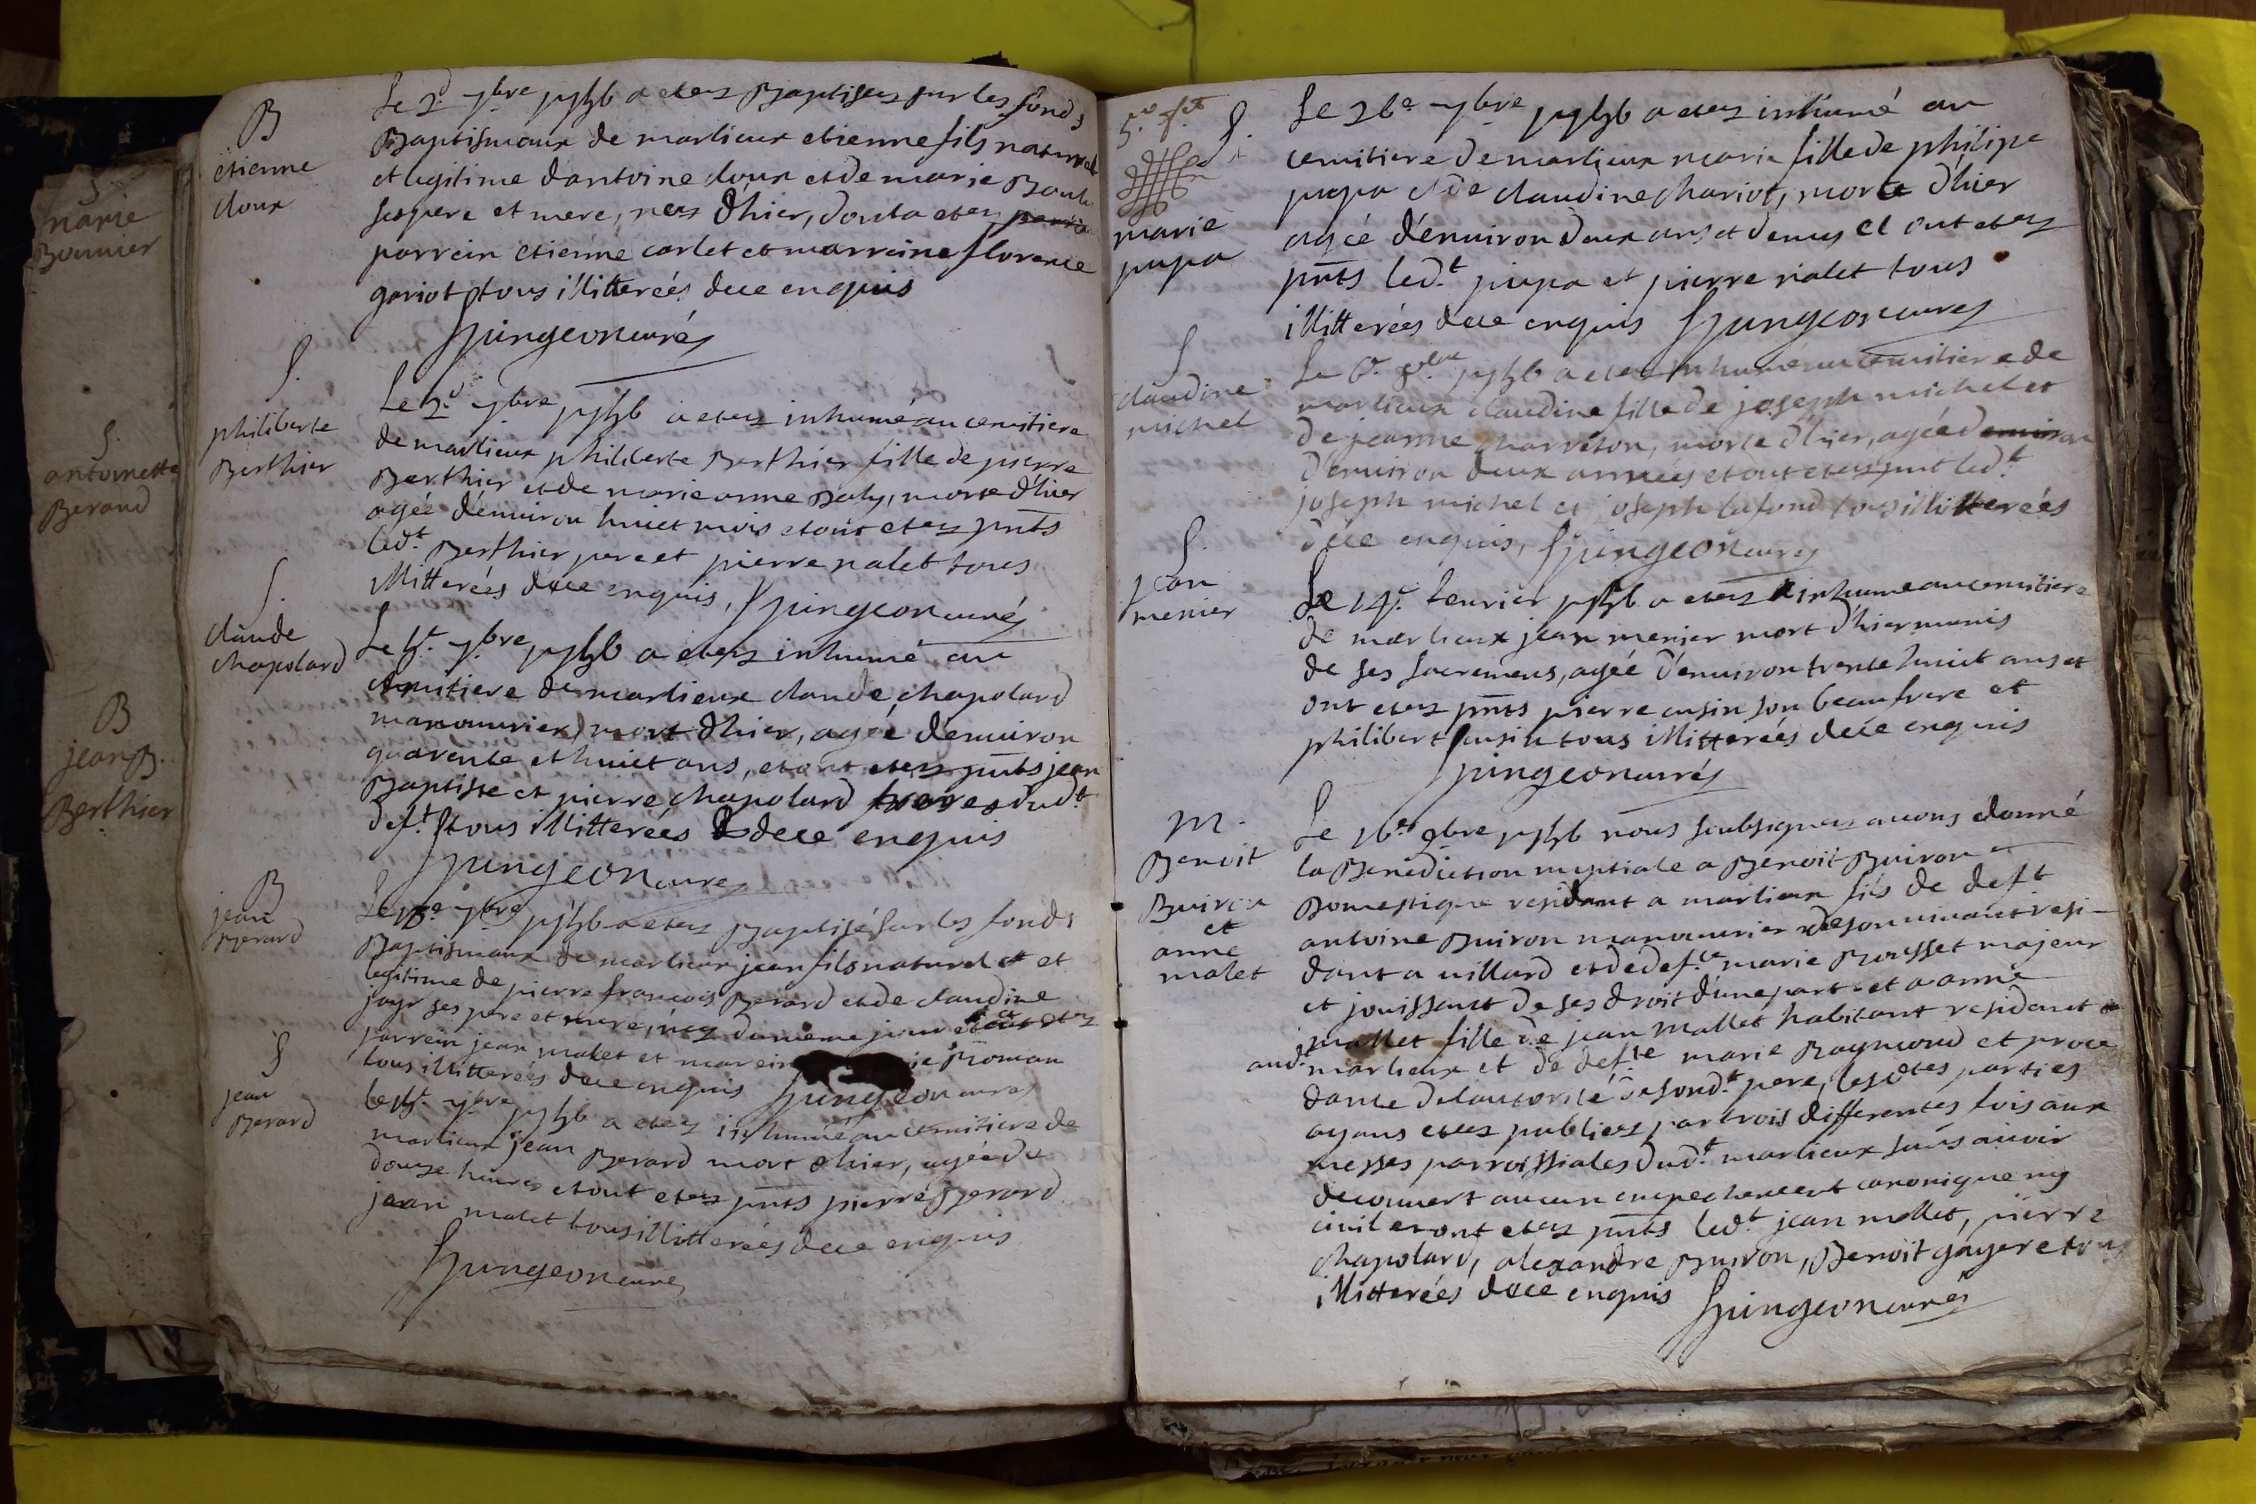 marie
Bounier
S.
antoinette
Berand
B
jean B.
Berthier
B
etienne
cloux
Le 2d. 7bre a etez Baptisez sur les fonds
Baptismaux de marlieux etienne fils naturel
et legitime dantoine cloux et de marie
ses pere et mere, nez d'hier, dont a etez
parrein etienne carlet et marreine florence
gariot tous illitterées dece enquis
Spingeon curé
S.
philiberte
Berthier
Le 2d. 7bre a etez inhumé au cemitiere
de marlieux philiberte Berthier fille de pierre
Berthier et de marie anne Baly, morte d'hier
agée d'environ huict mois et ont etez pnts
ledt. Berthier pere et pierre nalet tous
illitterées dece enquis, Spingeon curé
S.
claude
chapolard
7bre a etez inhumé au
cemitiere de marlieux claude chapolard
manouvrier, mort d'hier, agée d'environ
quarente et huict ans, et ont etez pnts jean
Baptiste et pierre chapolard freres dudt.
deft. tous illitterées dece enquis
Spingeon curé
B
jean
Berard
7bre a etez Baptisé sur les fonds
Baptismaux de marlieux jean fils naturel et et
legitime de pierre francois Berard et de claudine
jayr ses pere et mere, nez du meme jour et ont etez
parrein jean malet et marein Roman
tous illitterées dece enquis Spingeon curé
S
jean
Berard
7bre a etez inhumé au cemitiere de
marlieux jean Berard mort d'hier, agée de
douze heures et ont etez pnts pierre Berard
jean malet tous illitterées dece enquis
Spingeon curé
S.
marie
pupa
Le 26e 7bre a etez inhumé au
cemitiere de marlieux marie fille de philipe
pupa et de claudine chariot, morte d'hier
agée d'environ deux ans et demy et ont etez
pnts ledt. pupa et pierre nalet tous
illitterées dece enquis Spingeon curé
S
claudine
michel
Le 6e. a etez inhumé au cemitiere de
marlieux claudine fille de joseph michel et
de jeanne charreton, morte d'hier, agée denviron
d'environ deux années et ont etez pnt ledt.
joseph michel et joseph lafond tous illitterées
dece enquis, Spingeon curé
S.
jean
menier
Le 14e. a etez inhume au cemitiere
de marlieux jean menier mort d'hier munis
de ses sacremens, agée d'environ trente huict ans et
ont etez pnts pierre cusin son beaufrere et
philibert cusin tous illitterées dece enquis
Spingeon curé
m.
Benoit
Buiron
et
anne
malet
Le 16e. 9bre nous soubsignez avons donné
la Benediction nuptiale a Benoit Buiron
Domestique residant a marlieux fils de deft
antoine Buiron manouvrier de son vivant resi-
dant a villard et de defte marie Rousset majeur
et jouissant de ses droit d'une part et a anne
mallet fille de jean mallet habitant residant
audt marlieux et de defte marie Raymond et proce
dante de lautorité de sondt. pere, lesdtes parties
ayans etez publiez par trois differentes fois aux
messes parroissiales dudt. marlieux sans avoir
decouvert aucun empechement canonique ny
civil et ont etez pnts ledt. jean mallet, pierre
chapolard, alexandre Buiron, Benoit gayere tous
illitterées dece enquis Spingeon curé